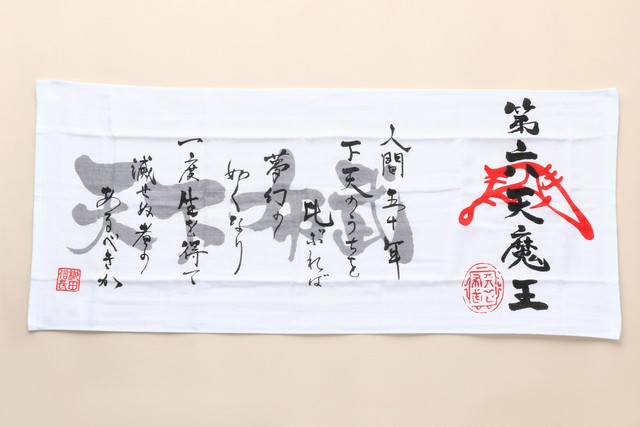 第六天魔王
人間五十年
下天のうちを
比ぶれば
夢幻の
如くなり
一度生を得て
滅せぬ者の
あるべきか
織田信長